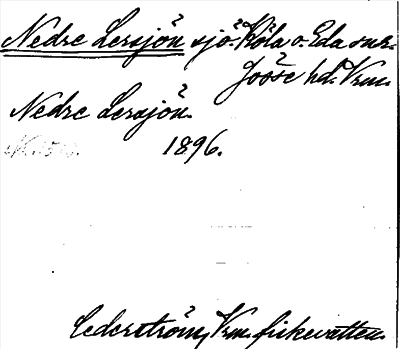 Nedre Lersjön sjö. Köla o. Eda snr.
Jösse hd. Vrm.
Nedre Lersjön.
1896.
Cederström, Vrm. fiskevatten.